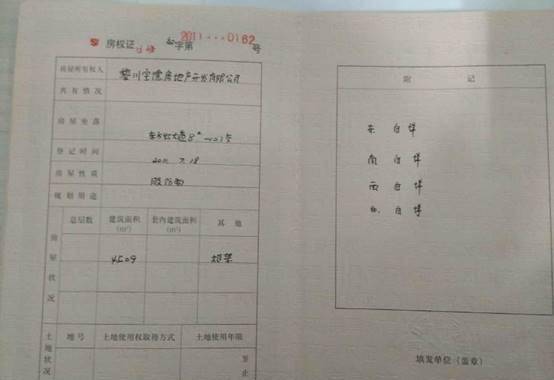 房权证 字第 2011···0162 号
房屋所有权人 房地产开发有限公司
共有情况
房屋坐落
登记时间 2011.7.18
房屋性质
规划用途
房屋状况
总层数 建筑面积(m²) 套内建筑面积(m²) 其他
4509 框架
土地状况
地号 土地使用权取得方式 土地使用年限
至
止
附记
东 自墙
南 自墙
西 自墙
北 自墙
填发单位（盖章）